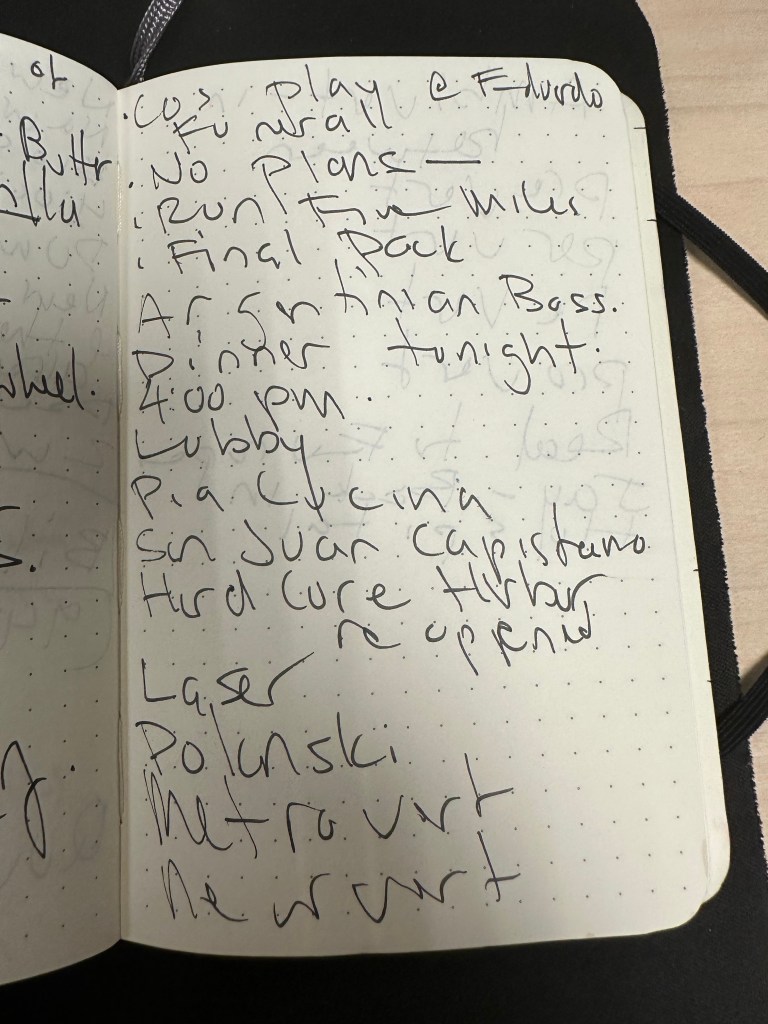 or
Buttr
wheel.
. Cos play @ Eduardo
Funerall
. No plans —
. Run Five miles
. Final Pack
Argentinian Bass.
Dinner tonight.
400 pm.
Lobby
Pia Cucina
San Juan Capistano
Hard Core Harbor
re oppend
Laser
Polanski
Metrovert